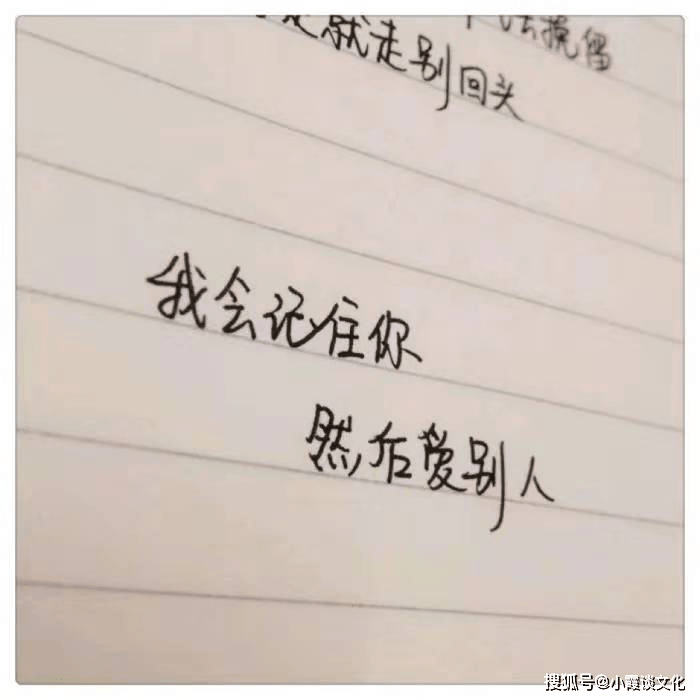 法挽留
是就走别回头
我会记住你
然后爱别人
搜狐号@小霞谈文化